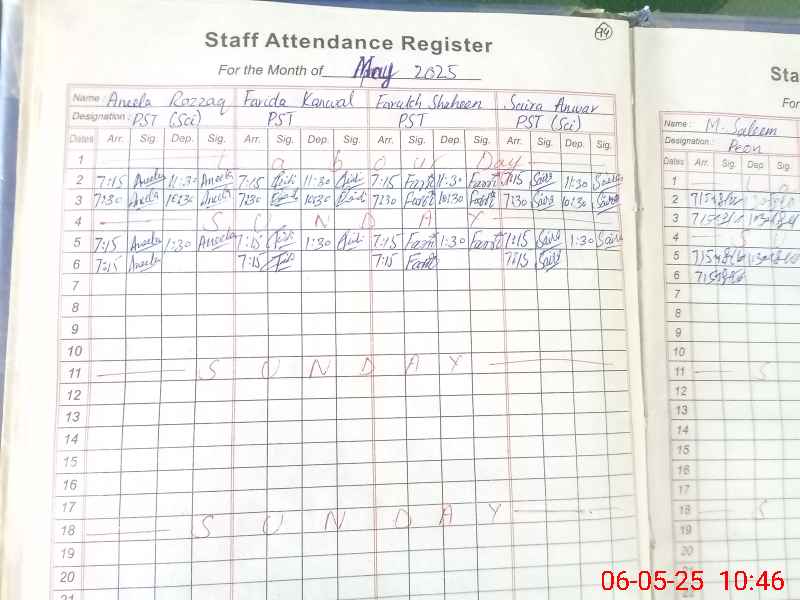 94
Staff Attendance Register
For the Month of May 2025
Name : Aneela Rozzaq Farida Kanwal Farukh Shaheen Saira Anwar
Designation : PST (Sci) PST PST PST (Sci)
Dates Arr. Sig. Dep. Sig. Arr. Sig. Dep. Sig. Arr. Sig. Dep. Sig. Arr. Sig. Dep. Sig.
1 Labour Day
2 7:15 Aneela 11:30 Aneela 7:15 11:30 7:15 11:30 7:15 Saira 11:30 Saira
3 7:30 Aneela 10:30 Aneela 7:30 10:30 7:30 10:30 7:30 Saira 10:30 Saira
4 SUNDAY
5 7:15 Aneela 1:30 Aneela 7:15 1:30 7:15 1:30 7:15 Saira 1:30 Saira
6 7:15 Aneela 7:15 7:15 7:15 Saira
7
8
9
10
11 SUNDAY
12
13
14
15
16
17
18 SUNDAY
19
20
21
Sta
For
Name : M. Saleem
Designation : Peon
Dates Arr. Sig. Dep. Sig.
1
2 715
3 715
4 S
5 715
6 715
7
8
9
10
11 S
12
13
14
15
16
17
18 S
19
20
06-05-25 10:46